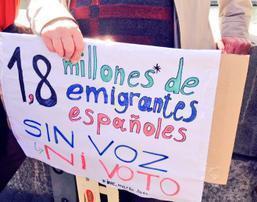 1,8 millones* de
emigrantes
españoles
SIN VOZ
y NI VOTO